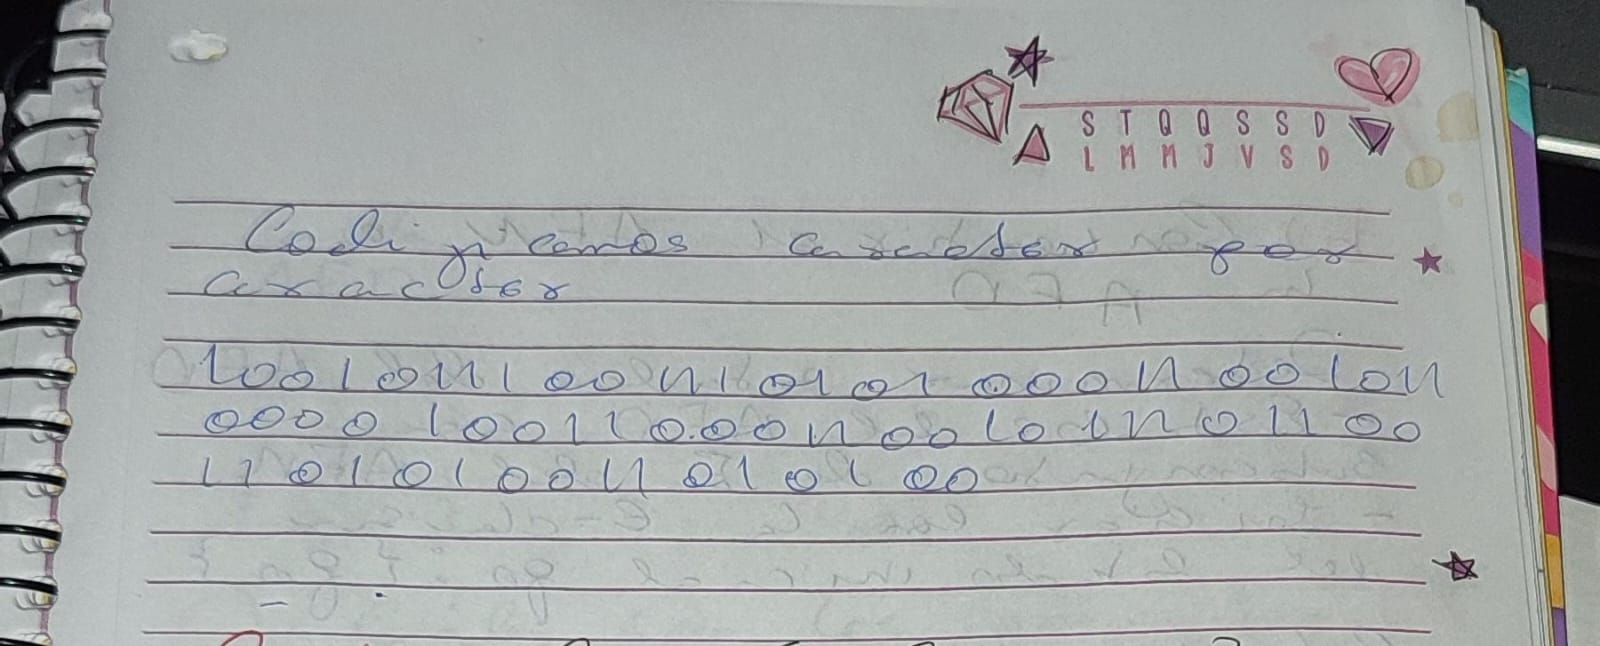 S T Q Q S S D
L M M J V S D
Codificamos caracter por
caracter
1001011100111010101000110010 11
0000100111000011001011101100
1101010011010100